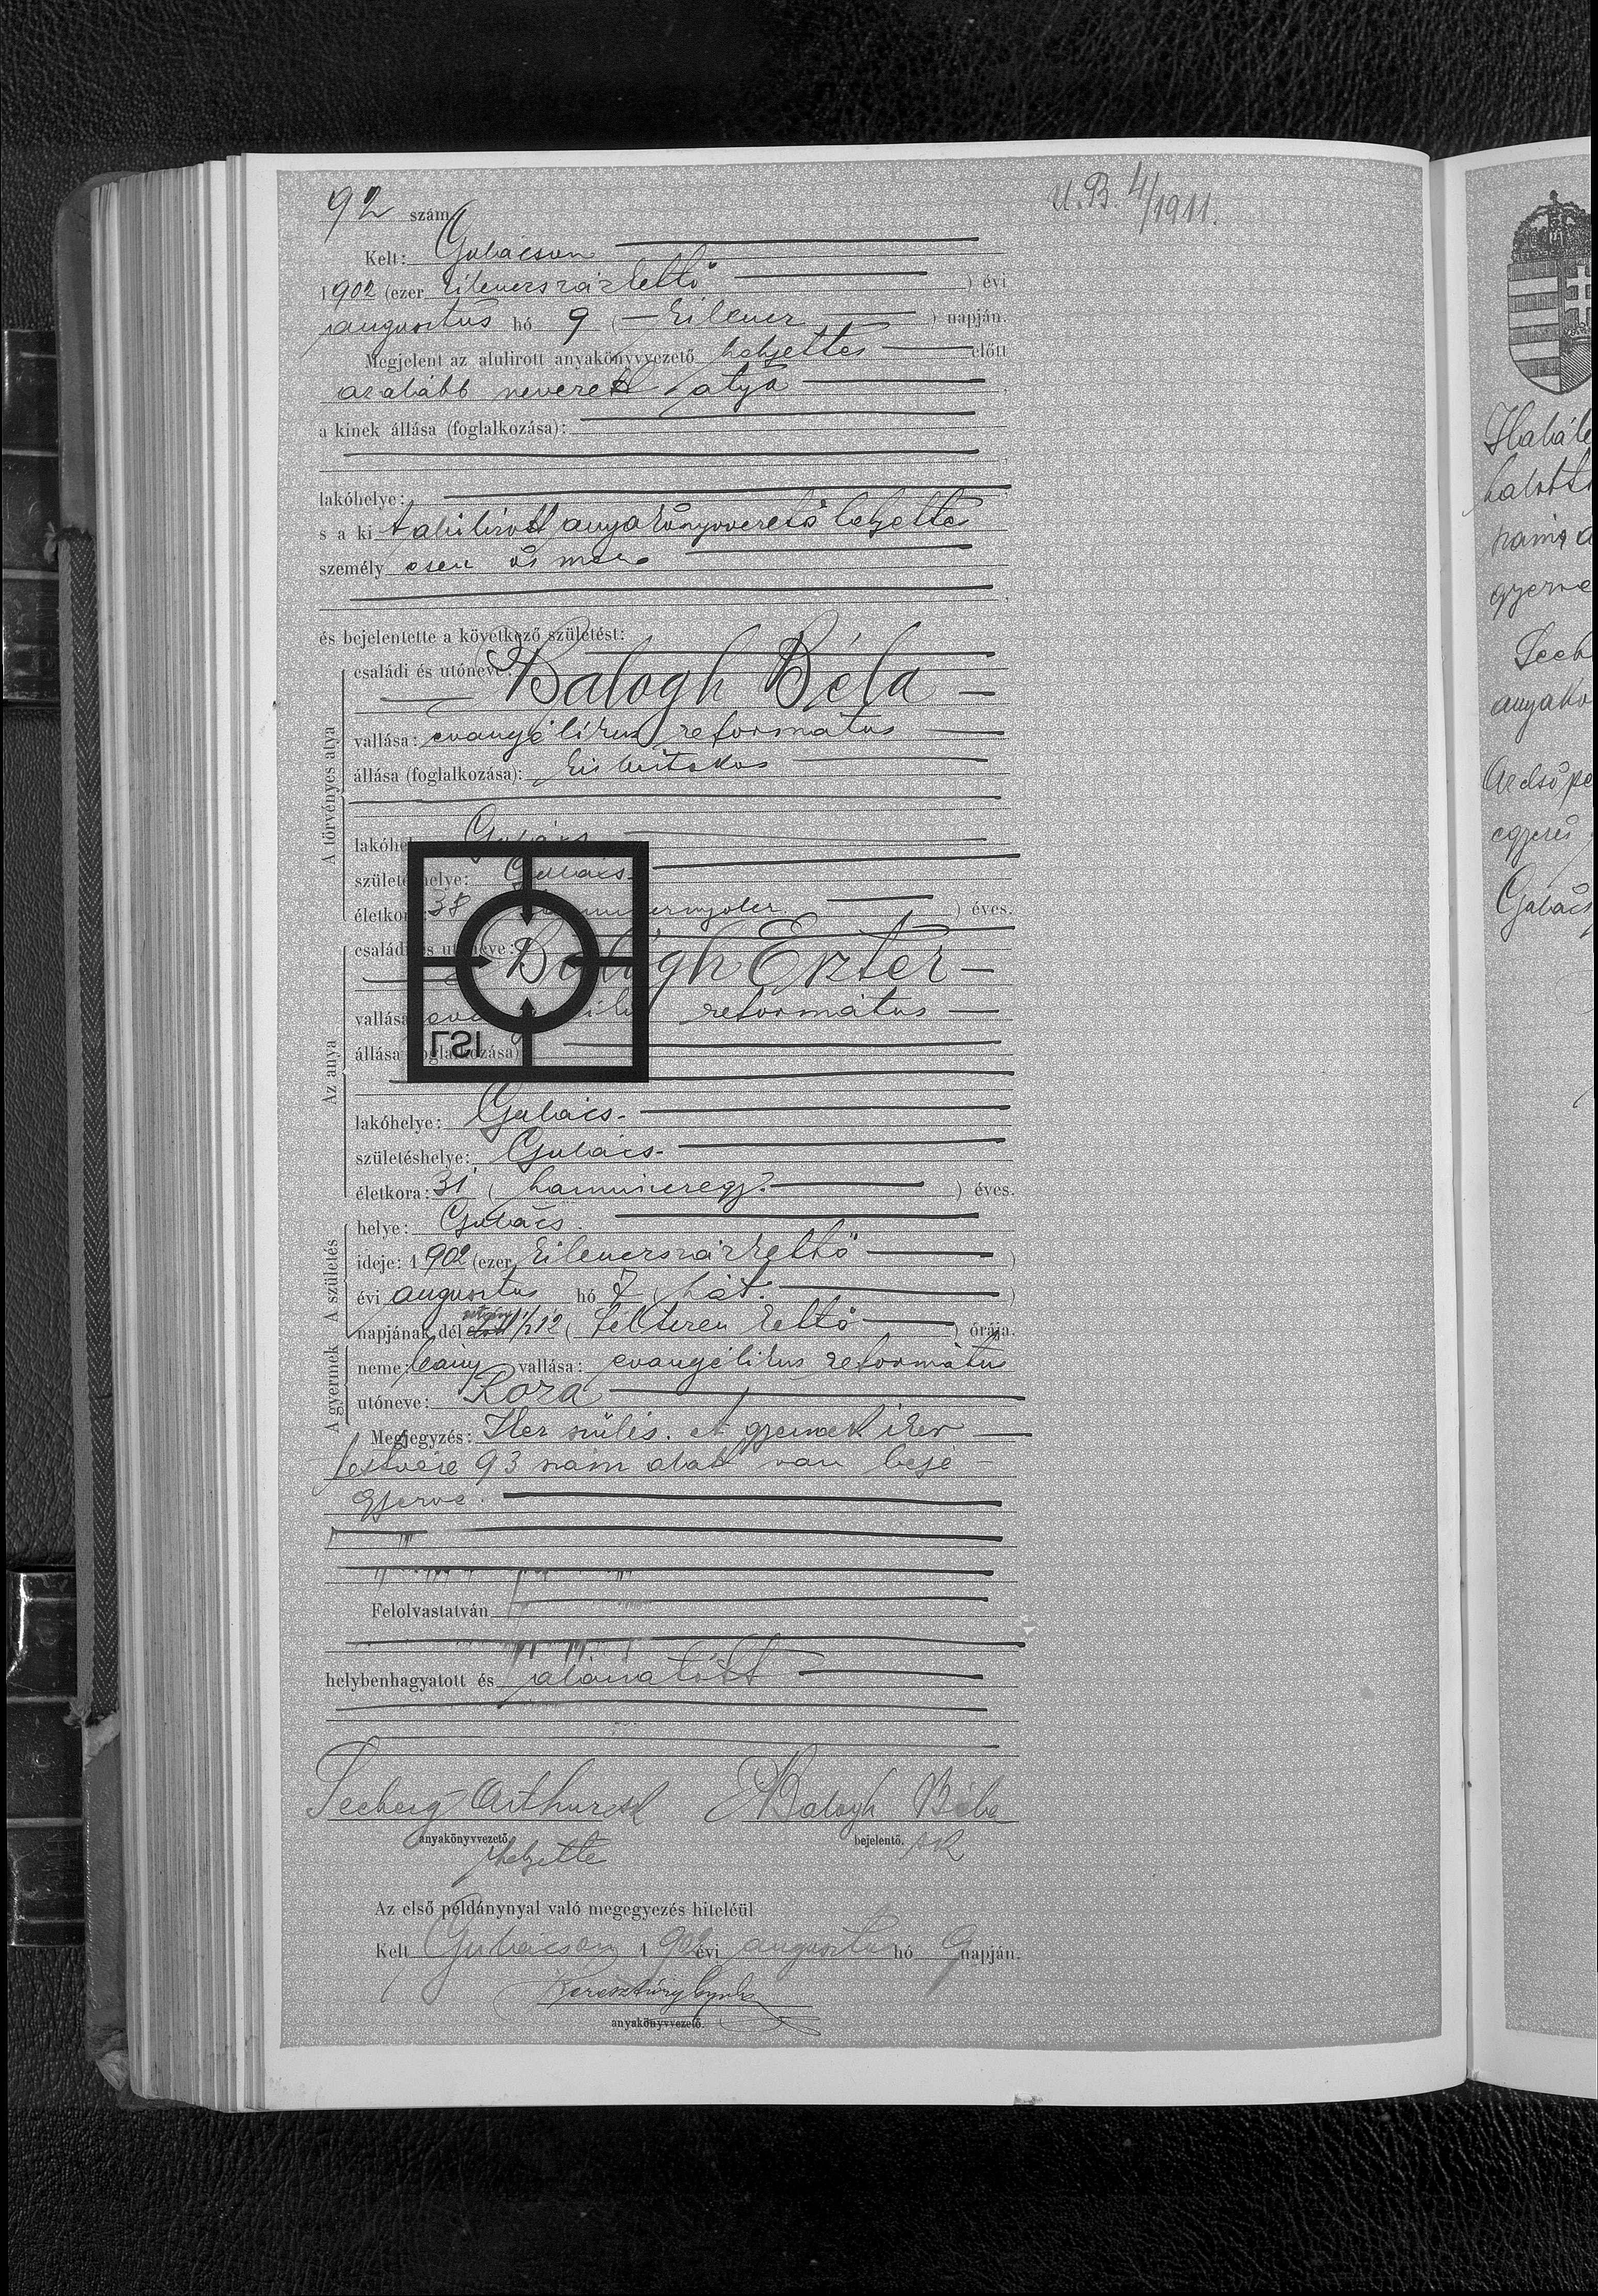 92 szám
U. B. 4/1911.
Kelt: Gulácson
1902 (ezer kilenczszázkettő ) évi
augusztus hó 9 ( kilencz ) napján.
Megjelent az alulirott anyakönyvvezető helyettes előtt
az alább nevezett atya
a kinek állása (foglalkozása):
lakóhelye:
s a kit alulirott anyakönyvvezető helyette
személy esen ösmer
és bejelentette a következő születést:
A törvényes atya
családi és utóneve: Balogh Béla
vallása: evangélikus református
állása (foglalkozása): kisbirtokos
lakóhe Gulács
születé helye: Gulács
életkor : 38 ) éves.
Az anya
családi és utóneve: Balogh Eszter
vallása református
állása foglalkozása)
LSI
lakóhelye: Gulács
születéshelye: Gulács
életkora: 31 ( harminczegy ) éves.
A születés
helye: Gulács
ideje: 1902 (ezer kilenczszázkettő )
évi augusztus hó 7 hét )
napjának dél 1/2 12 ( tizenkettő ) órája.
A gyermek
neme: leány vallása: evangélikus református
utóneve: Róza
Megjegyzés: Iker szülés. A gyermek iker
testvére 93 szám alatt van beje
gyezve.
Felolvastatván
helybenhagyatott és aláiratott
Seeberg Arthur sk Balogh Béla
anyakönyvvezető bejelentő. sk
helyette
Az első példánynyal való megegyezés hiteléül
Kelt Gulácson 1902 évi augusztus hó 9 napján.
anyakönyvvezető.